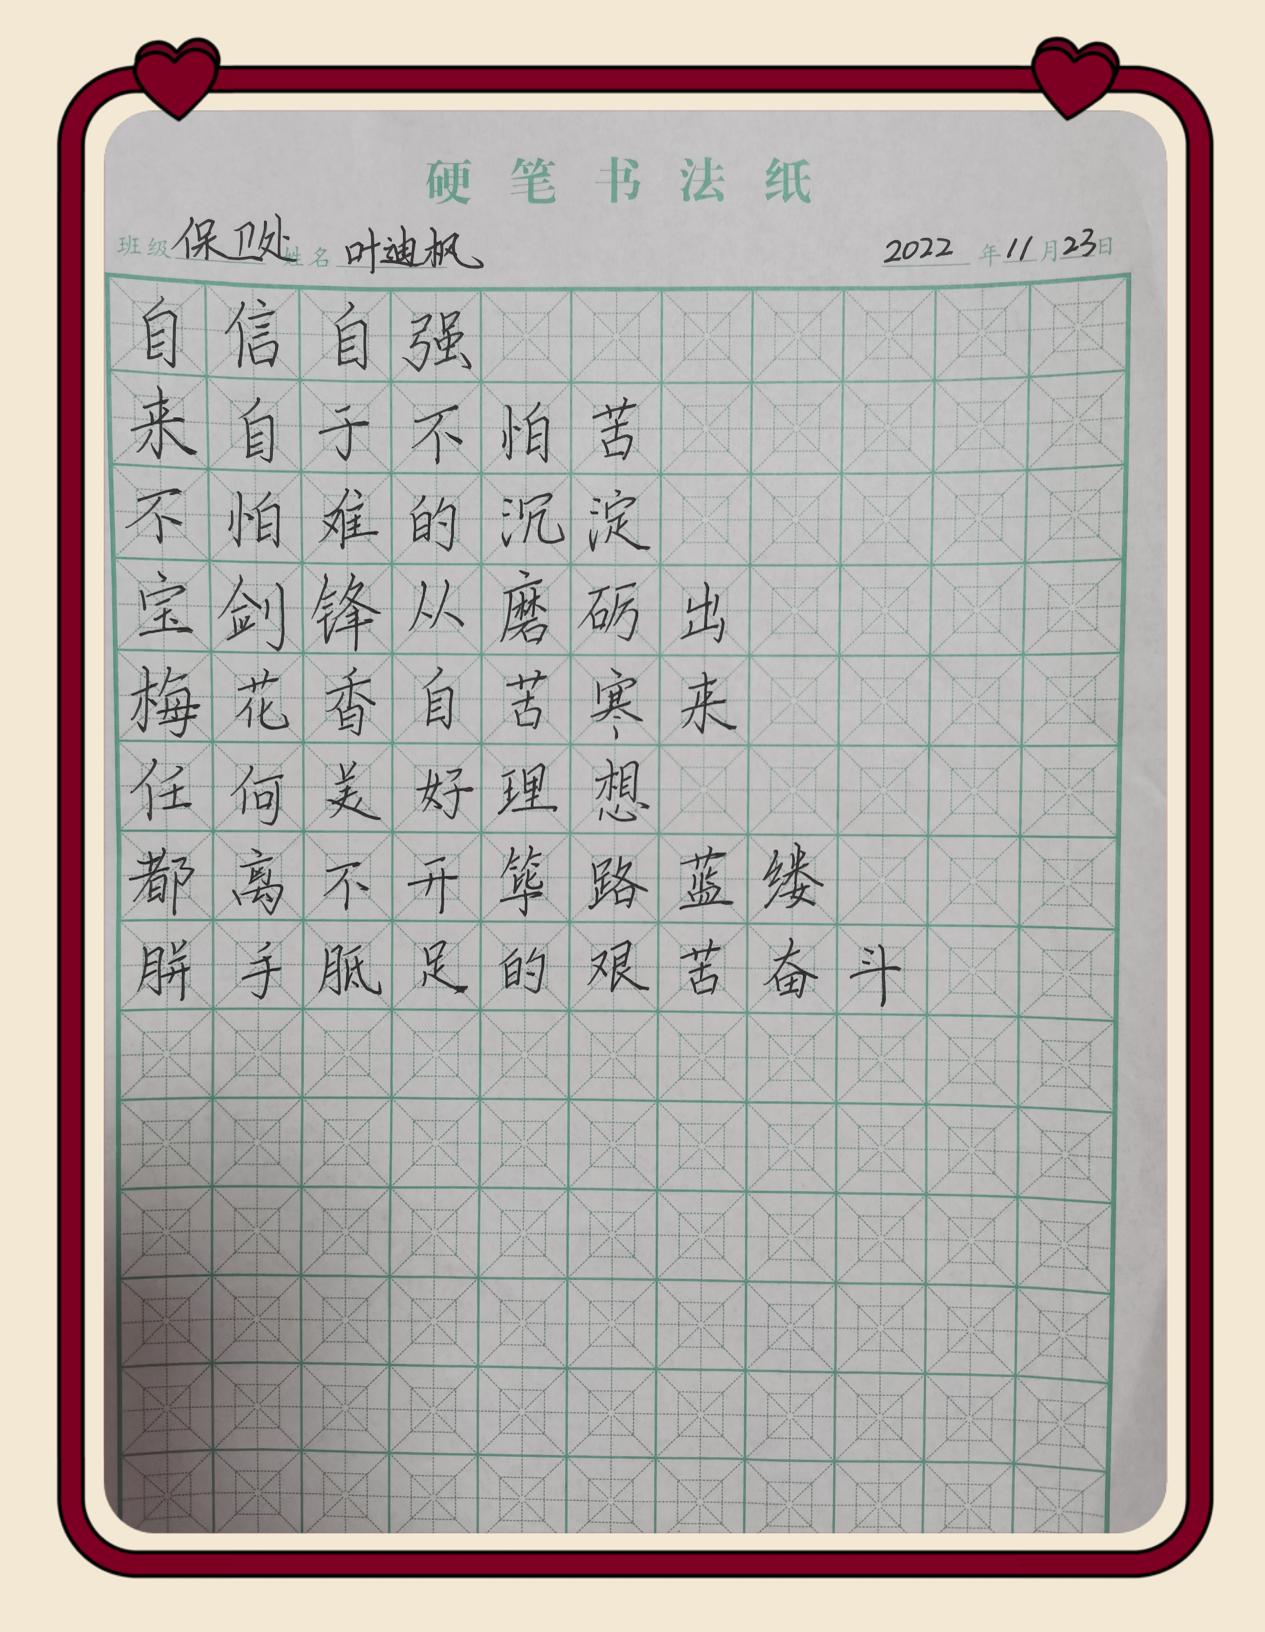 硬笔书法纸
班级 保卫处 姓名 叶迪枫 2022 年 11 月 23 日
自信自强
来自于不怕苦
不怕难的沉淀
宝剑锋从磨砺出
梅花香自苦寒来
任何美好理想
都离不开筚路蓝缕
胼手胝足的艰苦奋斗